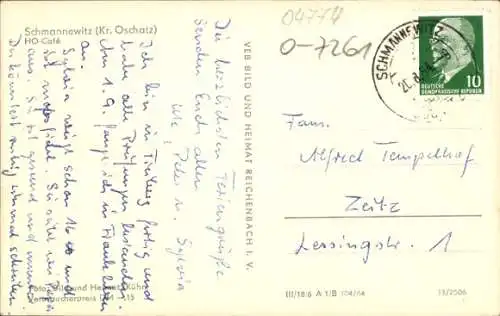 Schmannewitz (Kr. Oschatz)
HO-Café
04774
0-7261
Die herzlichsten Feriengrüße
senden Euch allen
Peter u. Sylvia
Ich bin in Freiberg fertig und
habe alle Prüfungen bestanden.
Am 1. 9. fange ich in
an.
Sylvia wiegt schon 16 und
ist
aus. Sie ist gesund und munter.
Du könntest ruhig mal schreiben.
Foto: Bild und Heimat
Verbraucherpreis M -,15
VEB BILD UND HEIMAT REICHENBACH I. V.
SCHMANNEWITZ
10
DEUTSCHE
DEMOKRATISCHE REPUBLIK
Fam.
Alfred Tempelhof
Zeitz
Lessingstr. 1
III/18/6 A 1/B 104/64
13/2506